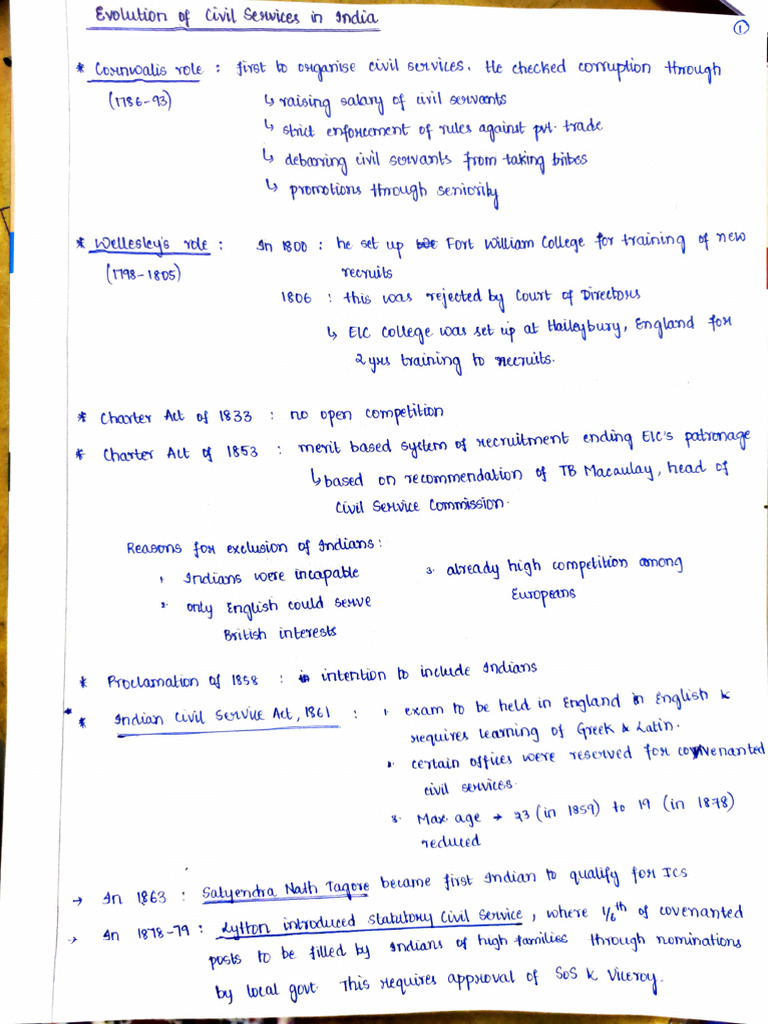 Evolution of Civil Services in India
1
* Cornwalis role : first to organise civil services. He checked corruption through
(1786-93) ↳ raising salary of civil servants
↳ strict enforcement of rules against pvt. trade
↳ debarring civil servants from taking bribes
↳ promotions through seniority
* Wellesley's role : In 1800 : he set up Fort William College for training of new
(1798-1805) recruits
1806 : this was rejected by Court of Directors
↳ EIC College was set up at Haileybury, England for
2 yrs training to recruits.
* Charter Act of 1833 : no open competition
* Charter Act of 1853 : merit based system of recruitment ending EIC's patronage
↳ based on recommendation of TB Macaulay, head of
Civil Service Commission.
Reasons for exclusion of Indians:
1. Indians were incapable 3. already high competition among
2. only English could serve Europeans
British interests
* Proclamation of 1858 : intention to include Indians
* Indian Civil Service Act, 1861 : 1. exam to be held in England in English &
requires learning of Greek & Latin.
2. certain offices were reserved for convenanted
civil services.
3. Max. age → 23 (in 1859) to 19 (in 1878)
reduced
→ In 1863 : Satyendra Nath Tagore became first Indian to qualify for ICS
→ In 1878-79 : Lytton introduced statutory Civil Service, where 1/6th of covenanted
posts to be filled by Indians of high families through nominations
by local govt. This requires approval of SoS & Viceroy.